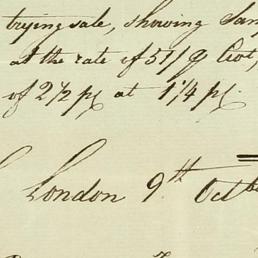 trying sale, showing Sam
at the rate of 51/ ℔ Cwt,
of 2½ p% at 1¼ p%.
London 9th Octb